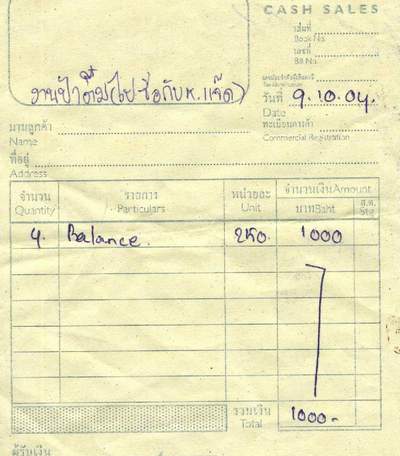 CASH SALES
เล่มที่
Book No.
เลขที่
Bill No.
วันที่ 9.10.04.
Date
ทะเบียนการค้า
Commercial Registration
นามลูกค้า
Name
ที่อยู่
Address
จำนวน รายการ หน่วยละ จำนวนเงิน Amount
Quantity Particulars Unit บาท Baht ส.ต. Stg.
4. Balance. 250. 1000
รวมเงิน
Total 1000-
ผู้รับเงิน